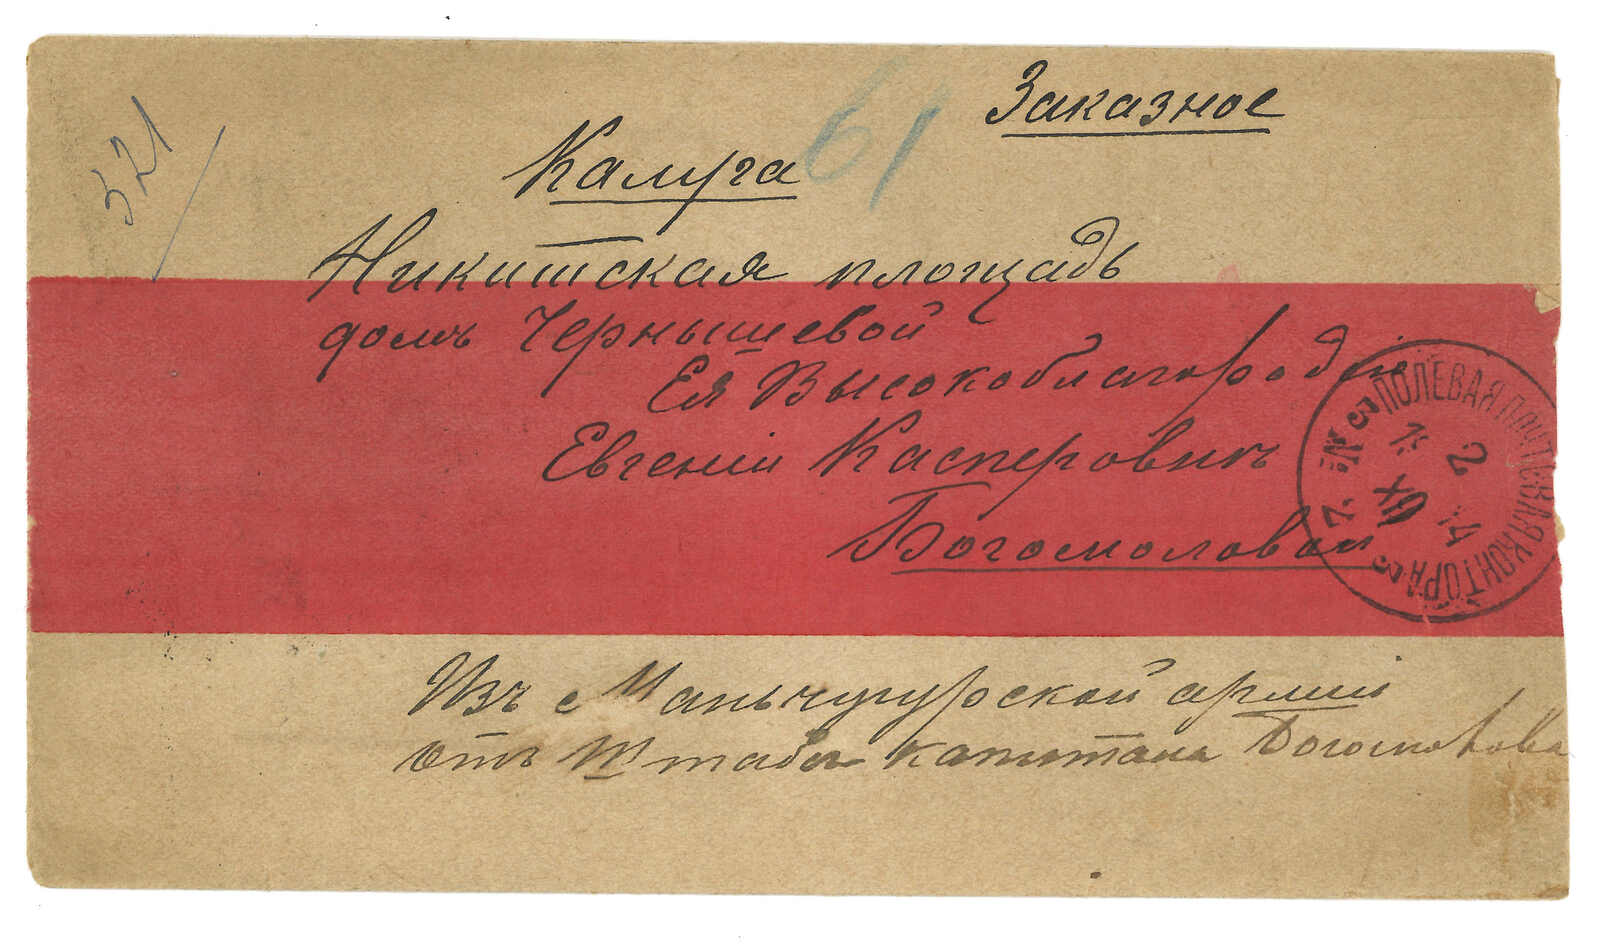 Заказное
61
321
Калуга
Никитская площадь
домъ Чернышевой
Ея Высокоблагородію
Евгеніи Касперовнѣ
Богомоловой
ПОЛЕВАЯ ПОЧТОВАЯ КОНТОРА
№ 3
2
XII
4
Изъ Маньчжурской арміи
отъ Штабсъ капитана Богомолова